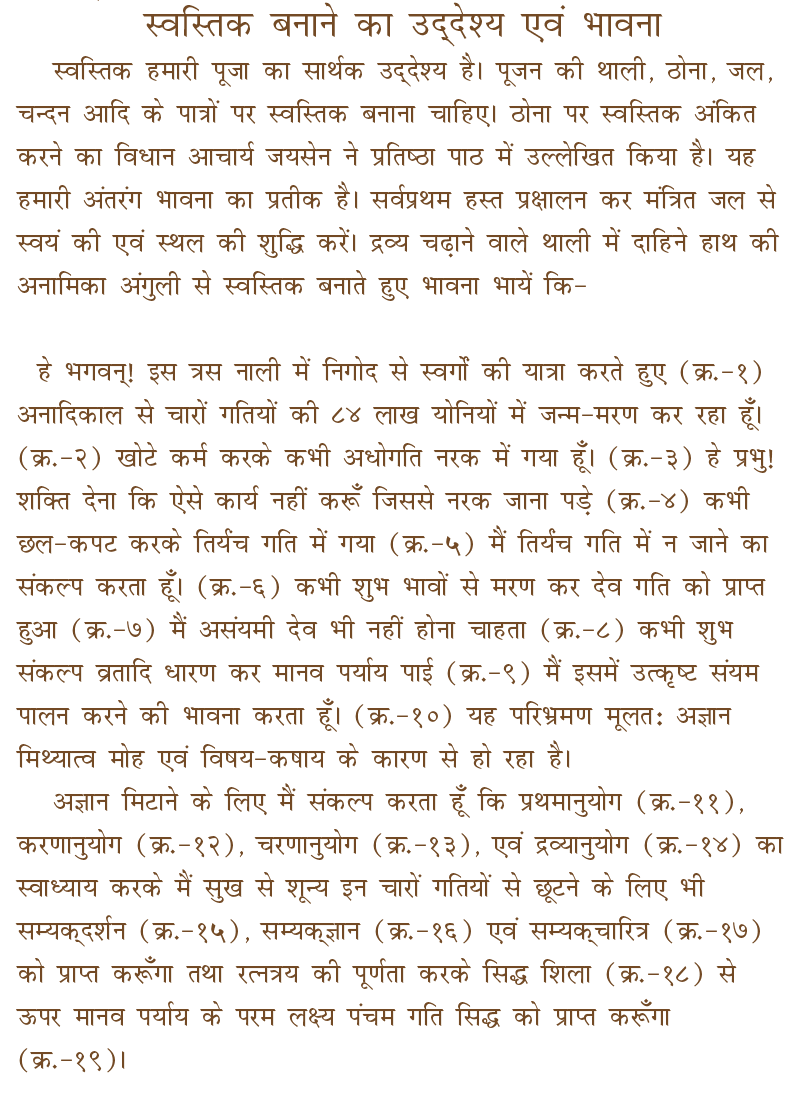 स्वस्तिक बनाने का उद्‌देश्य एवं भावना
स्वस्तिक हमारी पूजा का सार्थक उद्‌देश्य है। पूजन की थाली, ठोना, जल,
चन्दन आदि के पात्रों पर स्वस्तिक बनाना चाहिए। ठोना पर स्वस्तिक अंकित
करने का विधान आचार्य जयसेन ने प्रतिष्ठा पाठ में उल्लेखित किया है। यह
हमारी अंतरंग भावना का प्रतीक है। सर्वप्रथम हस्त प्रक्षालन कर मंत्रित जल से
स्वयं की एवं स्थल की शुद्धि करें। द्रव्य चढ़ाने वाले थाली में दाहिने हाथ की
अनामिका अंगुली से स्वस्तिक बनाते हुए भावना भायें कि-
हे भगवन्! इस त्रस नाली में निगोद से स्वर्गों की यात्रा करते हुए (क्र.-१)
अनादिकाल से चारों गतियों की ८४ लाख योनियों में जन्म-मरण कर रहा हूँ।
(क्र.-२) खोटे कर्म करके कभी अधोगति नरक में गया हूँ। (क्र.-३) हे प्रभु!
शक्ति देना कि ऐसे कार्य नहीं करूँ जिससे नरक जाना पड़े (क्र.-४) कभी
छल-कपट करके तिर्यंच गति में गया (क्र.-५) मैं तिर्यंच गति में न जाने का
संकल्प करता हूँ। (क्र.-६) कभी शुभ भावों से मरण कर देव गति को प्राप्त
हुआ (क्र.-७) मैं असंयमी देव भी नहीं होना चाहता (क्र.-८) कभी शुभ
संकल्प व्रतादि धारण कर मानव पर्याय पाई (क्र.-९) मैं इसमें उत्कृष्ट संयम
पालन करने की भावना करता हूँ। (क्र.-१०) यह परिभ्रमण मूलत: अज्ञान
मिथ्यात्व मोह एवं विषय-कषाय के कारण से हो रहा है।
अज्ञान मिटाने के लिए मैं संकल्प करता हूँ कि प्रथमानुयोग (क्र.-११),
करणानुयोग (क्र.-१२), चरणानुयोग (क्र.-१३), एवं द्रव्यानुयोग (क्र.-१४) का
स्वाध्याय करके मैं सुख से शून्य इन चारों गतियों से छूटने के लिए भी
सम्यक्‌दर्शन (क्र.-१५), सम्यक्‌ज्ञान (क्र.-१६) एवं सम्यक्‌चारित्र (क्र.-१७)
को प्राप्त करूँगा तथा रत्नत्रय की पूर्णता करके सिद्ध शिला (क्र.-१८) से
ऊपर मानव पर्याय के परम लक्ष्य पंचम गति सिद्ध को प्राप्त करूँगा
(क्र.-१९)।